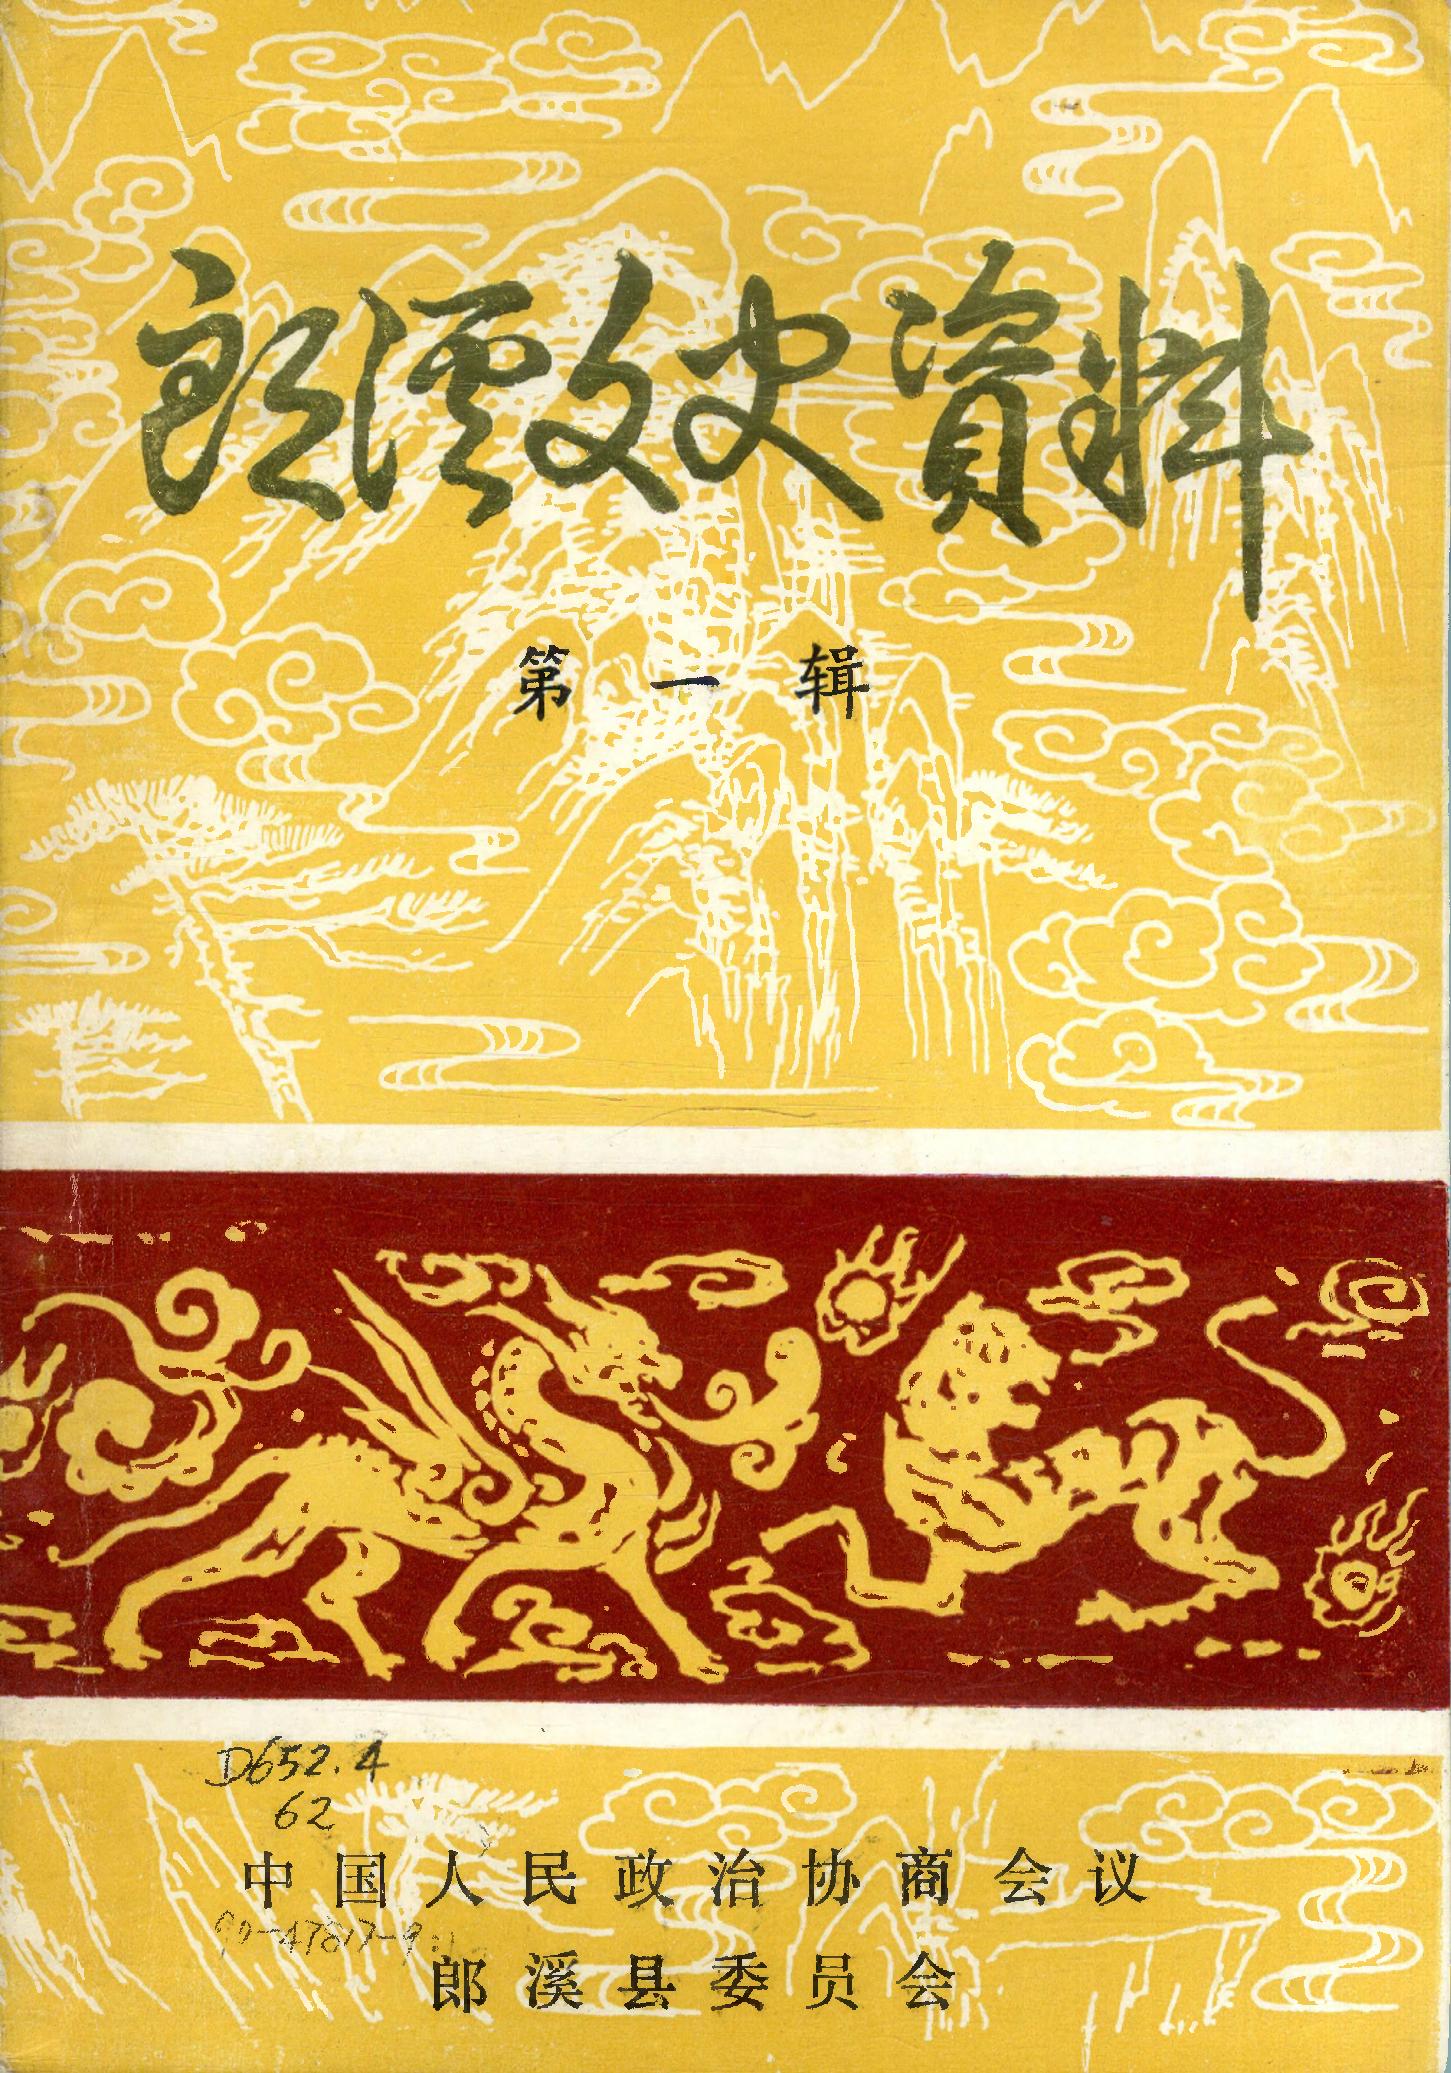 郎溪文史资料
第一辑
D652.4
62
中国人民政治协商会议
90-47817-9
郎溪县委员会